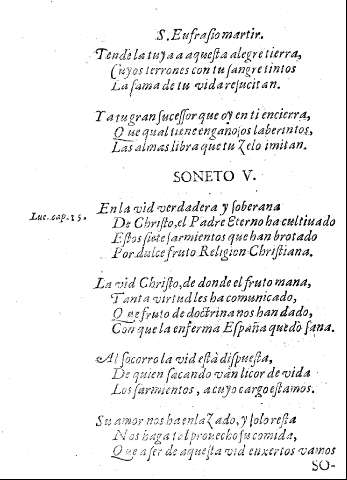 S. Eufrasio martir.
Tende la tuya a aquesta alegre tierra,
Cuyos terrones con tu sangre tintos
La fama de tu vida resucitan.
Y a tu gran sucessor que oy en ti encierra,
Que qual tiene enganosos laberintos,
Las almas libra que tu zelo imitan.
SONETO V.
En la vid verdadera y soberana
Luc. cap. 15.
De Christo, el Padre Eterno ha cultiuado
Estos siete sarmientos que han brotado
Por dulce fruto Religion Christiana.
La vid Christo, de donde el fruto mana,
Tanta virtud les ha comunicado,
Que fruto de doctrina nos han dado,
Con que la enferma España quedò sana.
Al socorro la vid està dispuesta,
De quien sacando van licor de vida
Los sarmientos, a cuyo cargo estamos.
Su amor nos ha enlazado, y solo resta
Nos haga tal prouecho su comida,
Que a ser de aquesta vid enxertos vamos
SO-